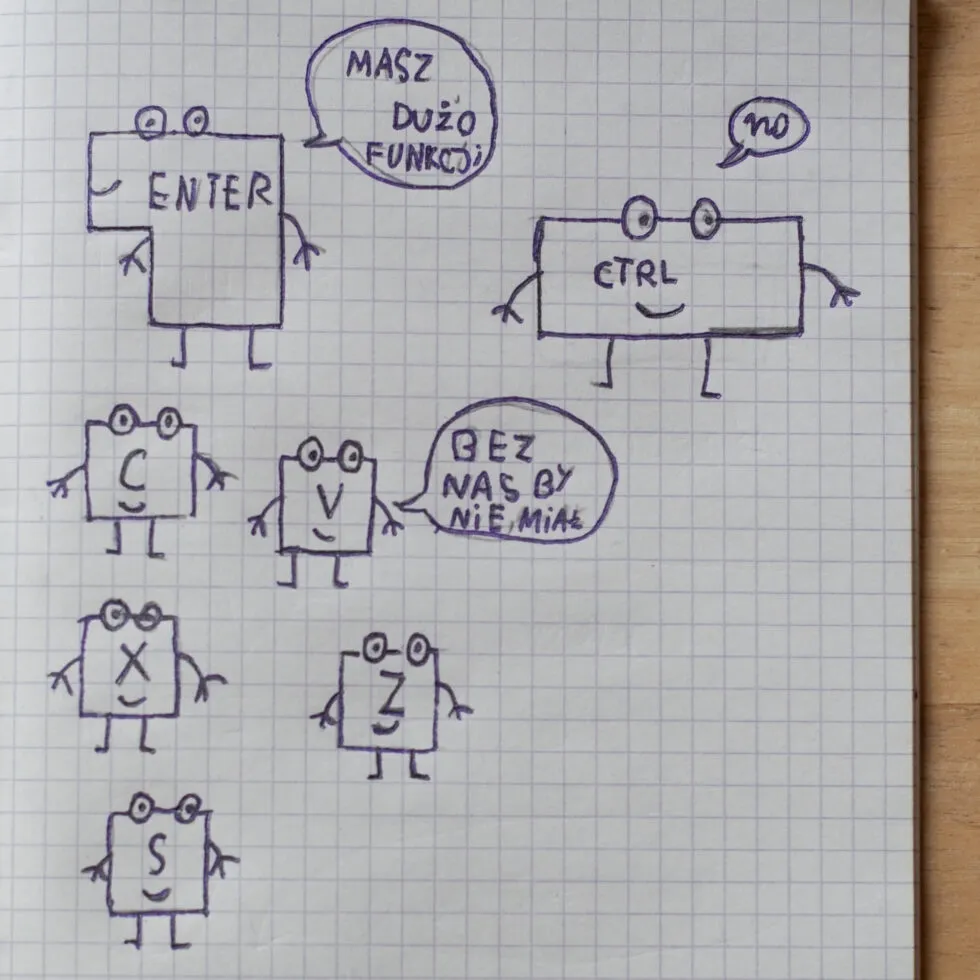 MASZ
DUŻO
FUNKCJi
no
ENTER
CTRL
C
V
BEZ
NAS BY
NiE MiAŁ
X
Z
S